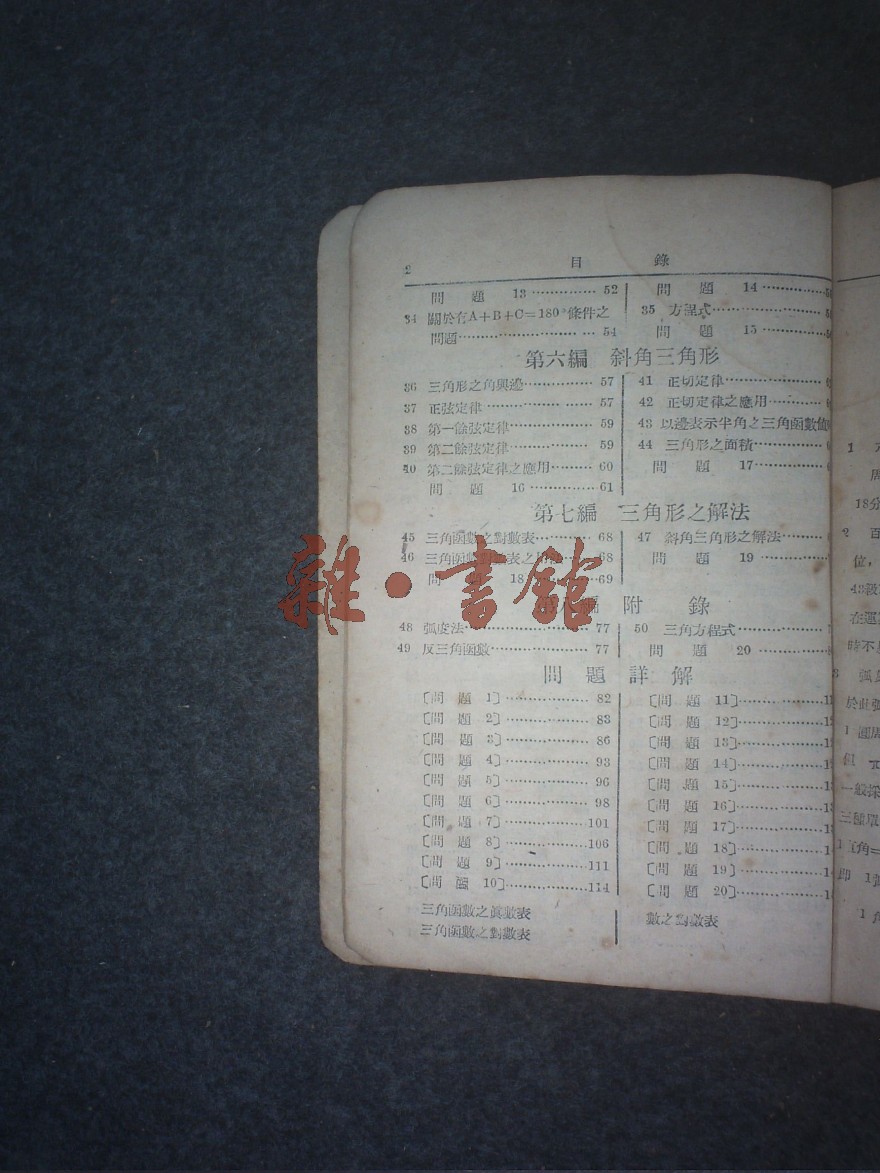 2 目 錄
問 題 13 52
34 關於有A+B+C=180°條件之
問題 54
問 題 14
35 方程式
問 題 15
第六編 斜角三角形
36 三角形之角與邊 57
37 正弦定律 57
38 第一餘弦定律 59
39 第二餘弦定律 59
40 第二餘弦定律之應用 60
問 題 16 61
41 正切定律
42 正切定律之應用
43 以邊表示半角之三角函數值
44 三角形之面積
問 題 17
第七編 三角形之解法
45 三角函數之對數表 68
46 三角函數對數表之 68
問 18 69
47 斜角三角形之解法
問 題 19
雜·書館
第八編 附 錄
48 弧度法 77
49 反三角函數 77
50 三角方程式
問 題 20
問 題 詳 解
〔問 題 1〕 82
〔問 題 2〕 83
〔問 題 3〕 86
〔問 題 4〕 93
〔問 題 5〕 96
〔問 題 6〕 98
〔問 題 7〕 101
〔問 題 8〕 106
〔問 題 9〕 111
〔問 題 10〕 114
〔問 題 11〕
〔問 題 12〕
〔問 題 13〕
〔問 題 14〕
〔問 題 15〕
〔問 題 16〕
〔問 題 17〕
〔問 題 18〕
〔問 題 19〕
〔問 題 20〕
三角函數之眞數表
三角函數之對數表
數之對數表
1
18分
2 百
位,
43級
在運
時不
弧
於此弧
1 圓周
但 π
一般採
三種單
1直角=
即 1弧
1 角